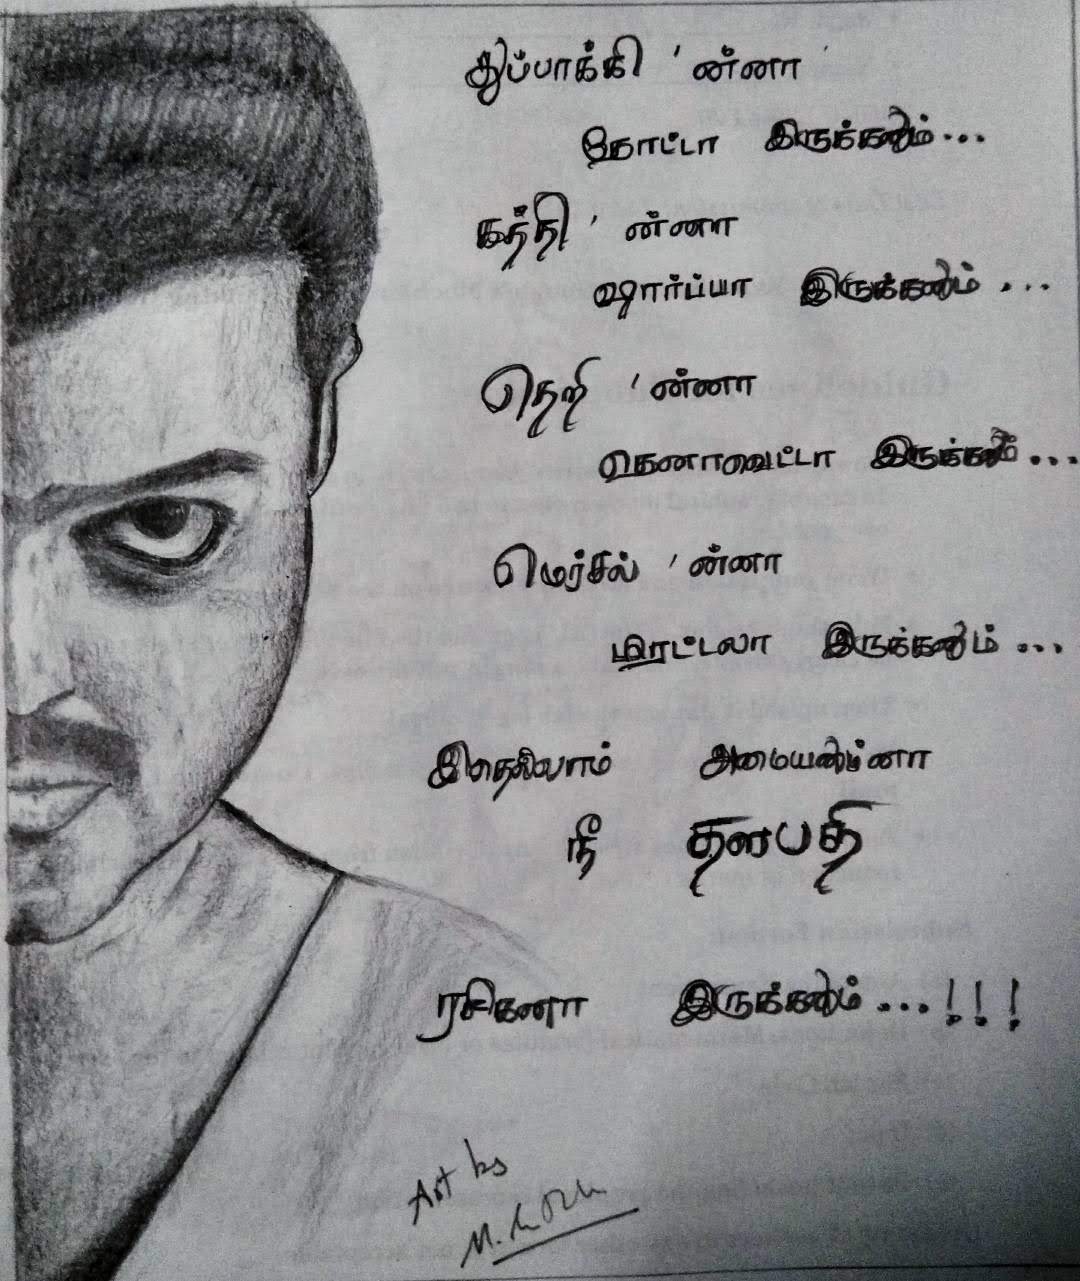 துப்பாக்கி 'ன்னா
தோட்டா இருக்கனும்...
கத்தி 'ன்னா
ஷார்ப்பா இருக்கனும்...
தெறி 'ன்னா
கெனாவெட்டா இருக்கனும்...
மெர்சல் 'ன்னா
மிரட்டலா இருக்கனும்...
இதெல்லாம் அமையனும்னா
நீ தளபதி
ரசிகனா இருக்கனும்...!!!
Art by
M.